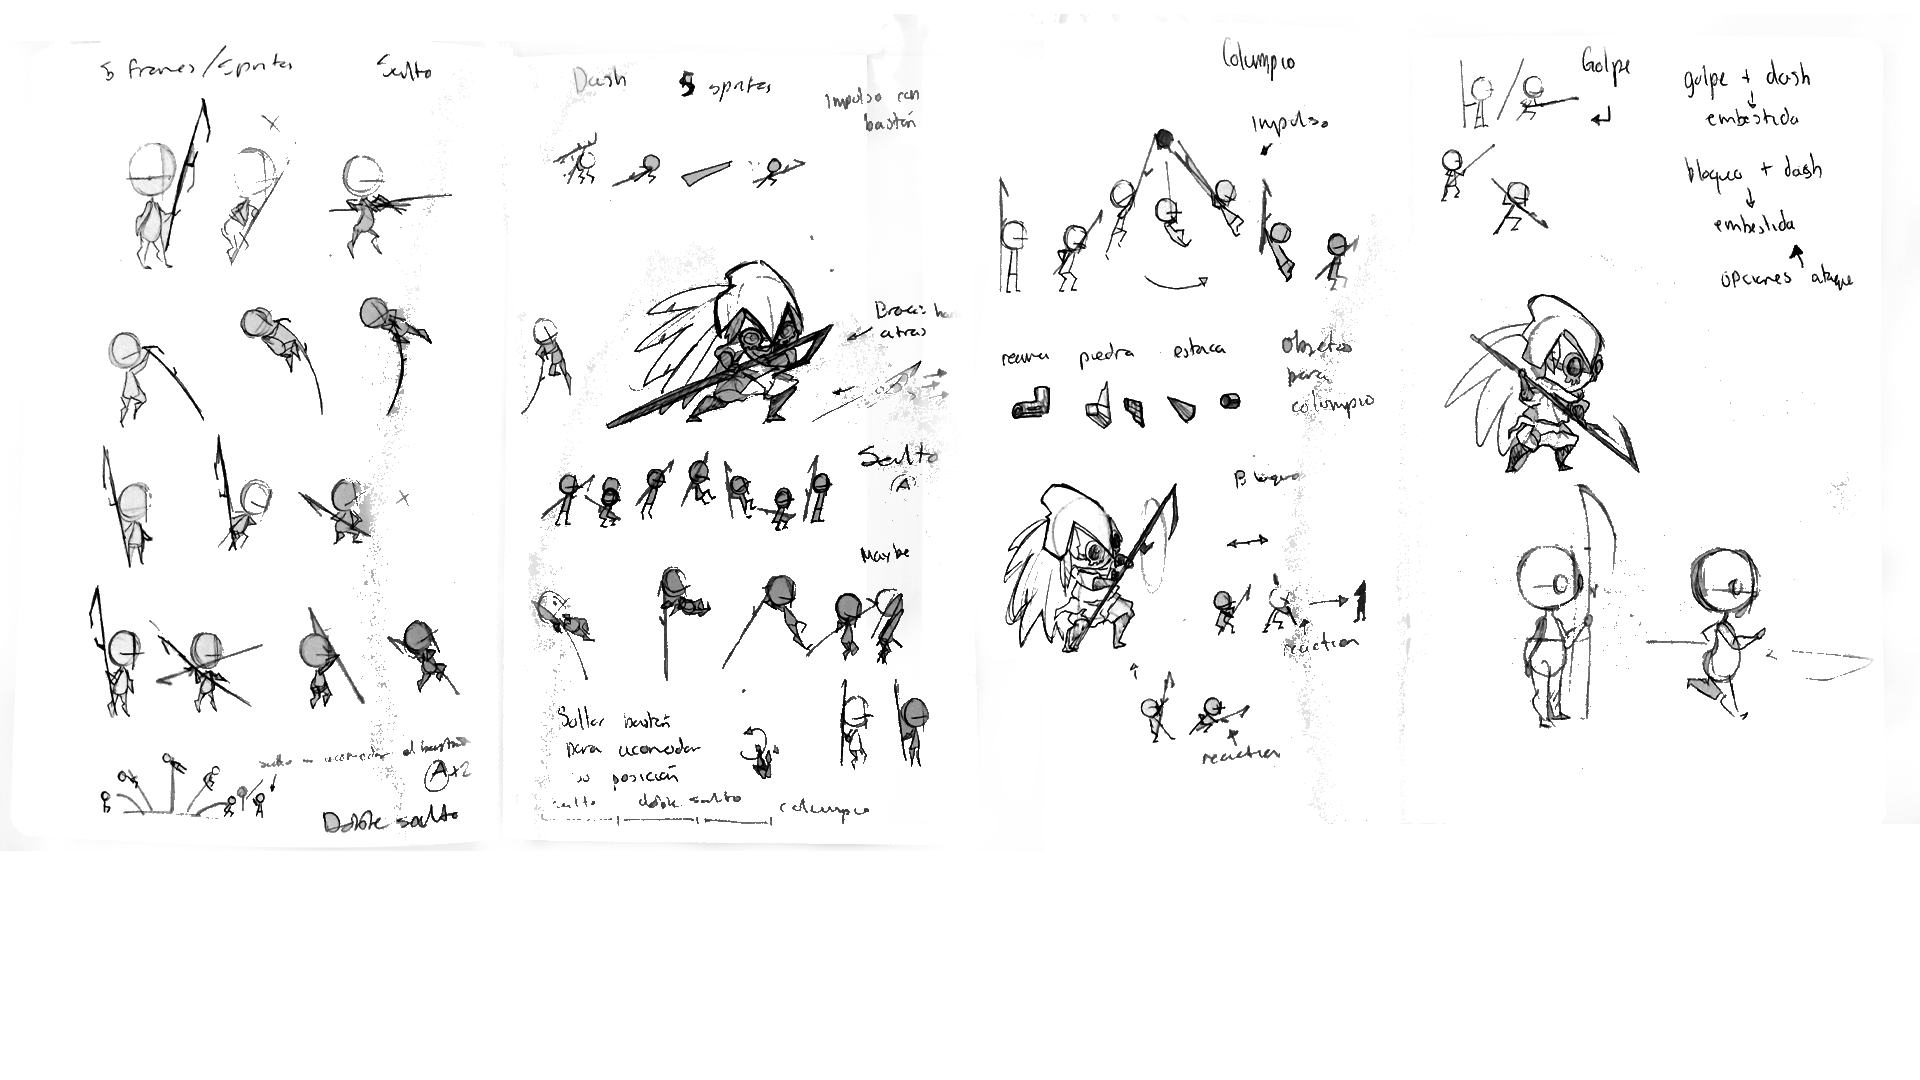 5 frames/sprites
Salto
x
x
A x2
Doble salto
Dash 5 sprites
Impulso con
bastón
atras
Salto
(A)
Maybe
Soltar bastón
para acomodar
su posición
salto doble salto columpio
Columpio
Impulso
piedra estaca
Objetos
para
columpio
Bloqueo
reaction
reaction
Golpe
golpe + dash
embestida
bloqueo + dash
embestida
opciones ataque